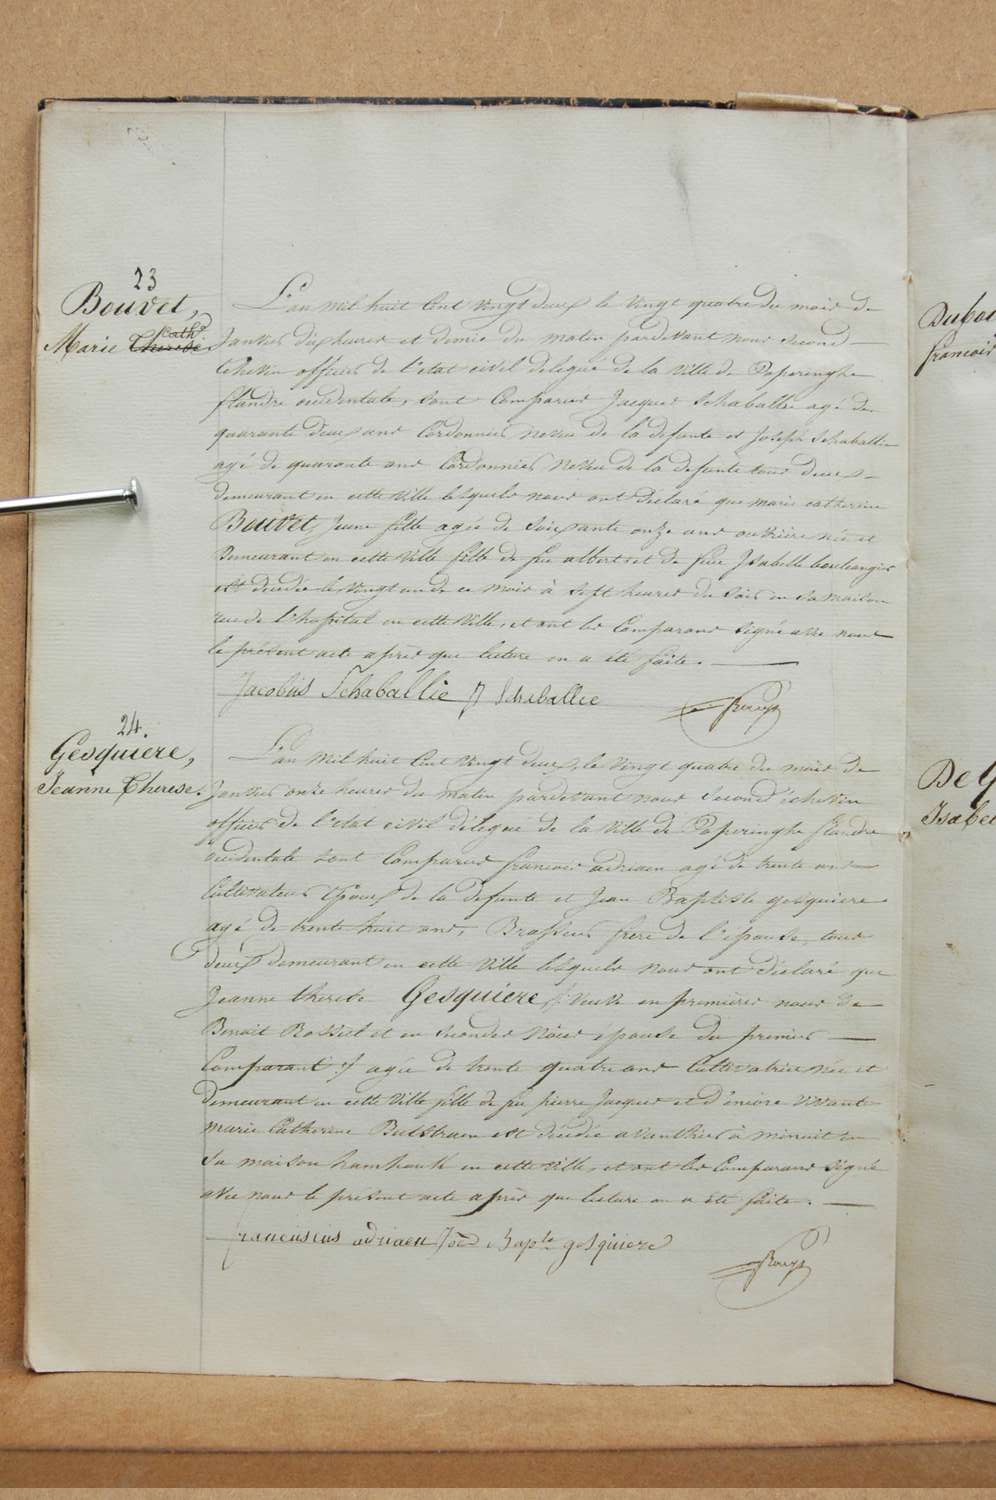 23
Bouvet,
Marie Cath.
L'an mil huit Cent vingt deux le vingt quatre du mois de
Janvier dix heures et demie du matin pardevant nous second
Echevin officier de l'etat civil délégué de la ville de Poperinghe
flandre occidentale, sont Comparus Jacques Schaballie agé de
quarante deux ans Cordonnier Neveu de la defunte et Joseph Schaballie
agé de quarante ans Cordonnier Neveu de la defunte tous deux
demeurant en cette ville lesquels nous ont déclaré que marie catherine
Bouvet, Jeune fille agée de Soixante onze ans ouvrière née et
Demeurant en cette ville fille de feu albert et de feue Isabelle boulangier
est decedée le vingt un de ce mois à Sept heures du Soir en sa maison
rue de l'hopital en cette ville, et ont les Comparans signé avec nous
le présent acte après que lecture en a été faite.
Jacobus Schaballie J Schaballie
24.
Gesquiere,
Jeanne Therese.
L'an mil huit Cent vingt deux, le vingt quatre du mois de
Janvier onze heures du matin pardevant nous second échevin
officier de l'etat civil délégué de la ville de Poperinghe flandre
occidentale sont Comparus francois adriaen agé de trente ans
Cultivateur Epoux de la defunte et Jean Baptiste gesquiere
agé de trente huit ans, Brasseur frere de l'epouse, tous
deux demeurant en cette ville lesquels nous ont déclaré que
Jeanne therese Gesquiere, veuve en premieres noces de
Benoit et en secondes Noces epouse du premier
Comparant agée de trente quatre ans Cultivatrice née et
demeurant en cette ville fille de feu pierre Jacques et d'encore vivante
marie Catherine est decedée avant hier à minuit en
Sa maison hamhoek en cette ville, et ont les Comparans signé
avec nous le présent acte après que lecture en a été faite.
franciscus adriaen Joe Bapte gesquiere
Duboi
francois
De
Isabel